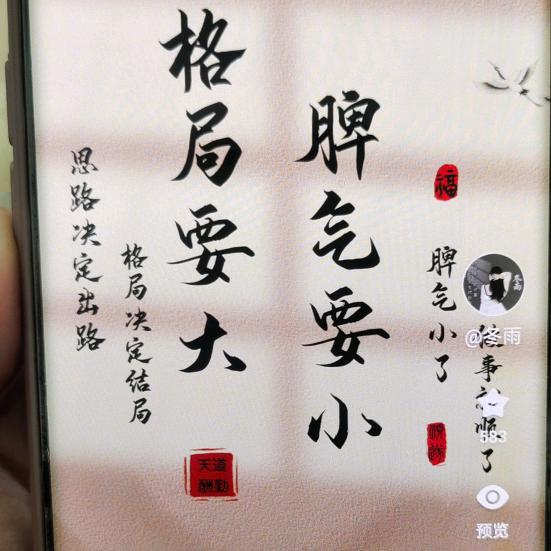 福
脾气小了
事
顺了
脾气要小
格局要大
格局决定结局
思路决定出路
天道
酬勤
@冬雨
583
预览